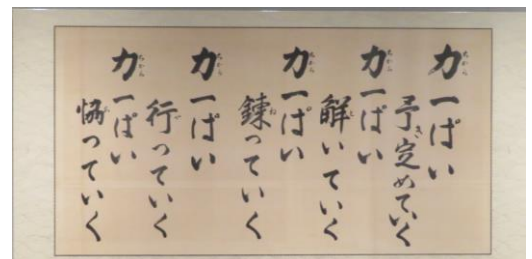 力一ぱい
予定めていく
力一ぱい
觧いていく
力一ぱい
錬っていく
力一ぱい
行っていく
力一ぱい
恊っていく